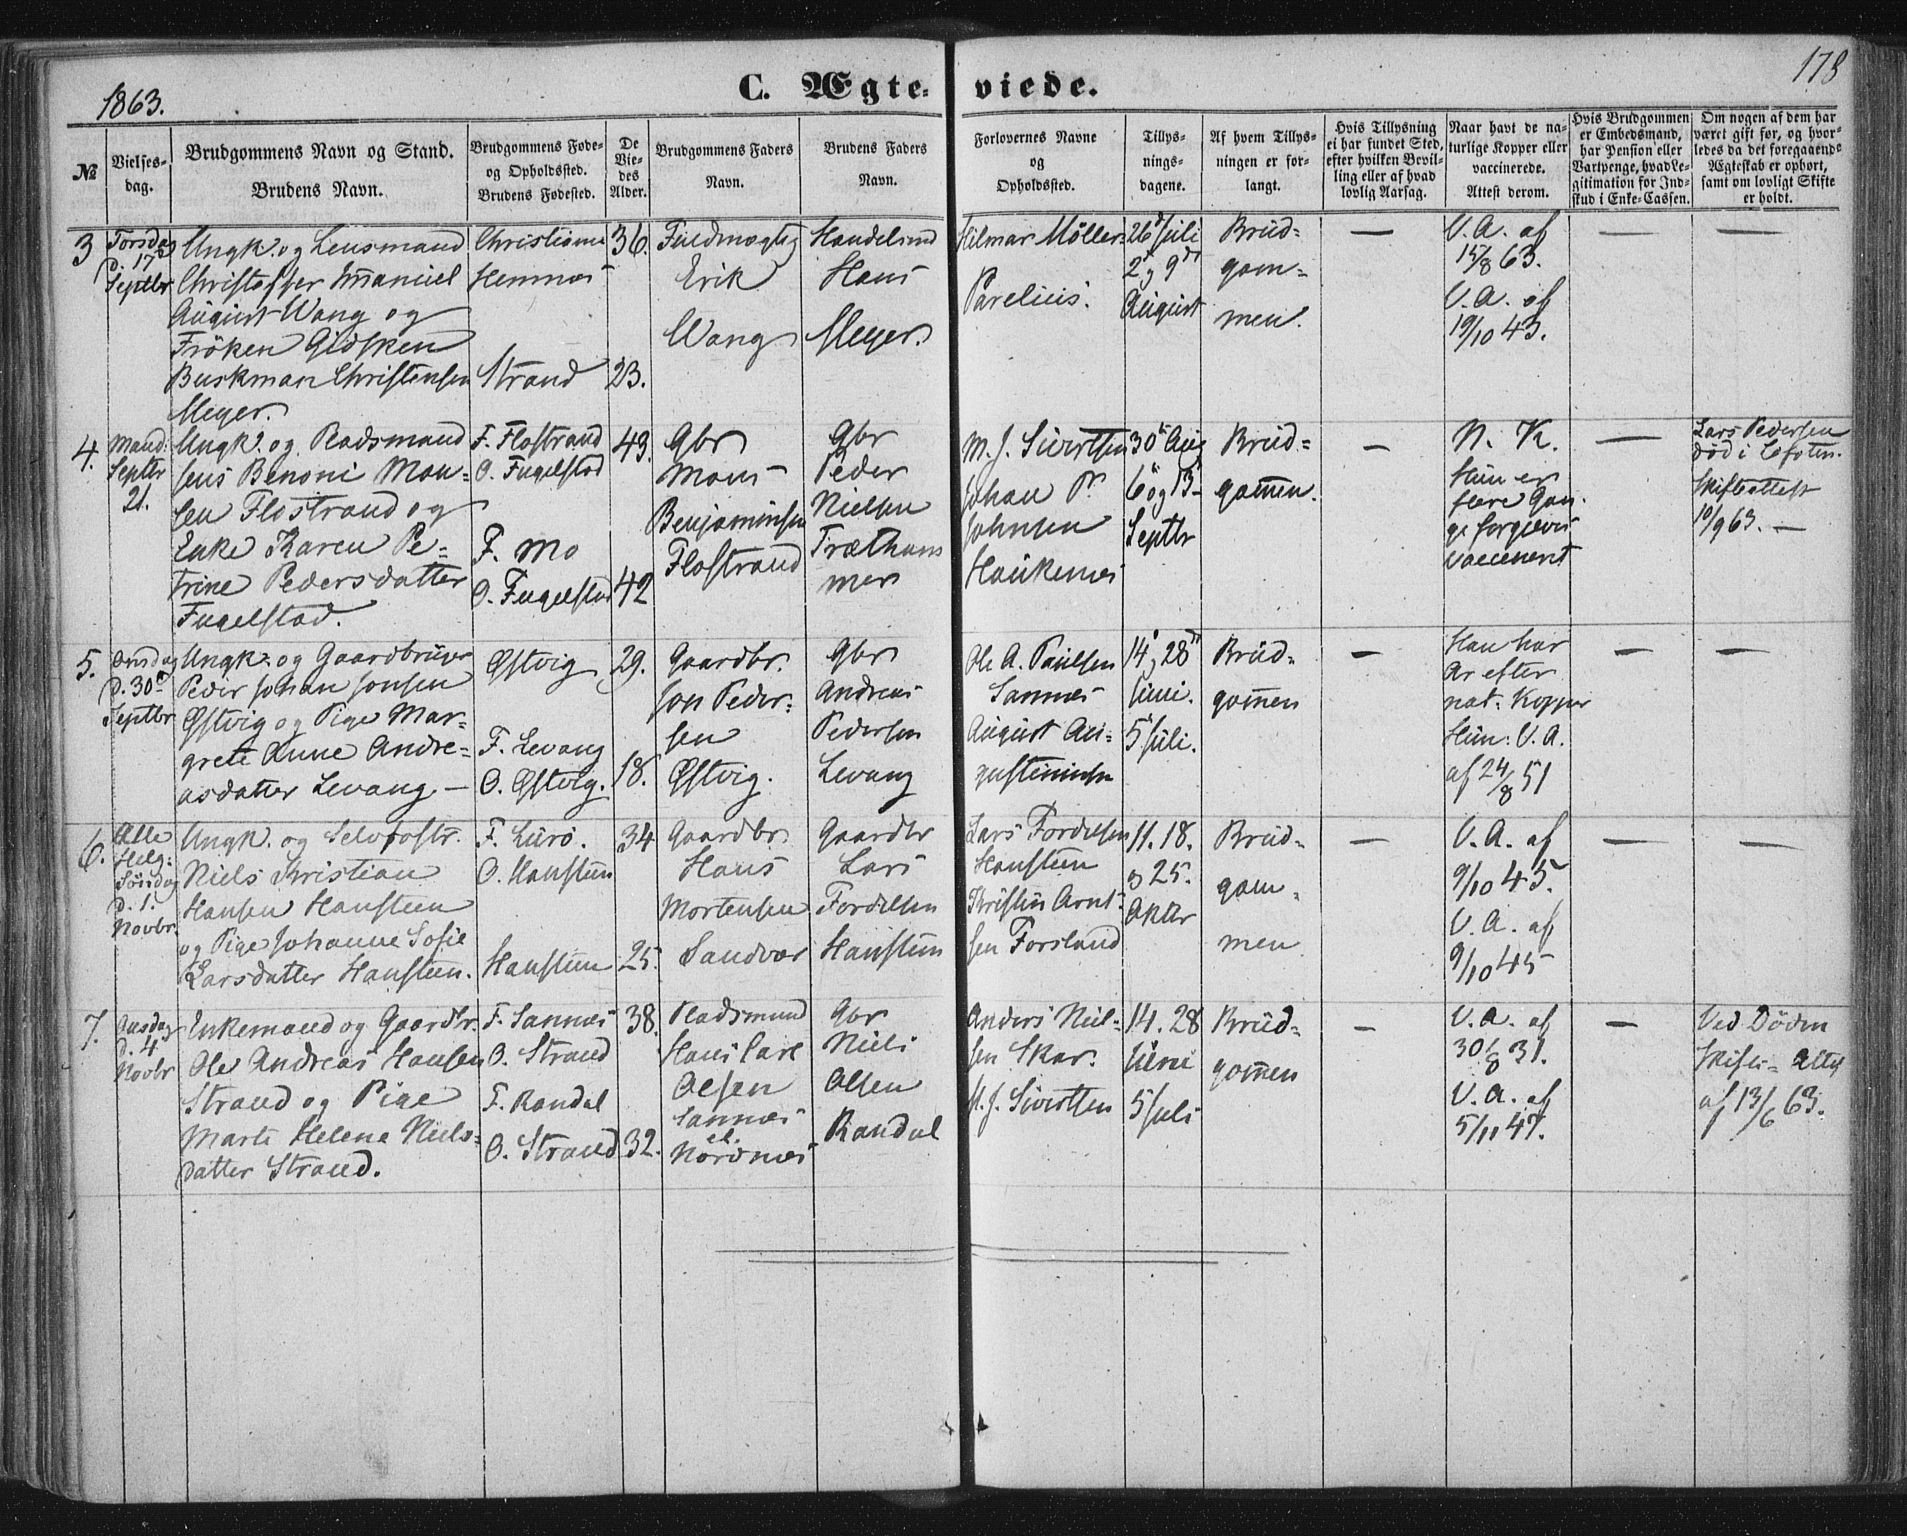 1863.
C. Ægte-
viede.
178
№
Vielses-
dag.
Brudgommens Navn og Stand.
Brudens Navn.
Brudgommens Føde-
og Opholdssted.
Brudens Fødested.
De
Vie-
des
Alder.
Brudgommens Faders
Navn.
Brudens Faders
Navn.
Forlovernes Navne
og
Opholdssted.
Tillys-
nings-
dagene.
Af hvem Tillys-
ningen er for-
langt.
Hvis Tillysning
ei har fundet Sted,
efter hvilken Bevil-
ling eller af hvad
lovlig Aarsag.
Naar havt de na-
turlige Kopper eller
vaccinerede.
Attest derom.
Hvis Brudgommen
er Embedsmand,
har Pension eller
Vartpenge, hvad Le-
gitimation for Ind-
skud i Enke-Cassen.
Om nogen af dem har
været gift før, og hvor-
ledes da det foregaaende
Ægteskab er ophørt,
samt om lovligt Skifte
er holdt.
3
Torsdag
d. 17de
Septbr
Ungk. og Lensmand
Christoffer Imanuel
August Wang og
Frøken Gidsken
Buskman Christensen
Meyer.
Christiania
Hemnes
Strand
36.
23.
Fuldmægtig
Erik
Wang
Handelsmd
Hans
Meyer.
Hilmar Møller
Parelius.
26d Juli
2d og 9d
August
Brud-
gom-
men.
—
V. A. af
15/8 63.
V. A. af
19/10 43.
—
—
4.
Mand:
Septbr
21.
Ungk. og Pladsmand
Jens Benoni Mon-
sen Flostrand og
Enke Karen Pe-
trine Pedersdatter
Fugelstad.
F. Flostrand
O. Fugelstad
F. Mo
O. Fugelstad
43.
42
Gbr
Mons
Benjaminsen
Flostrand
Gbr
Peder
Nielsen
Trætham
mer
M. J. Sivertsen
Johan P.
Johnsen
Haukenes
30d Aug
6 og 13
Septbr
Brud-
gommen.
—
N. K.
Hun er
flere Gan-
ge forgjeves
vaccineret
—
Lars Pedersen
død i Lofoten.
Skifteattest
10/9 63. —
5.
Onsdag
d. 30d
Septbr
Ungk. og Gaardbruger
Peder Johan Jonsen
Østvig og Pige Mar-
grete Anne Andre-
asdatter Levang —
Østvig
F. Levang
O. Østvig.
29.
18.
Gaardbr.
Jon Peder-
sen
Østvig.
Gbr
Andreas
Pedersen
Levang
Ole A. Paulsen
Sannes
August Au-
gustinusen
14, 28d
Juni.
5 Juli.
Brud-
gommen
—
Han har
Ar efter
nat: Kopper
Hun: V. A.
af 24/8 51
—
—
6.
Alle
Helg:
Søndag
d. 1.
Novbr.
Ungk. og Selvfostr.
Niels Kristian
Hansen Hansteen
og Pige Johanne Sofie
Larsdatter Hansteen.
F. Lurø.
O. Hansteen
Hansteen
34
25.
Gaardbr.
Hans
Mortensen
Sandvær
Gaardbr
Lars
Fordelsen
Hansteen
Lars Fordelsen
Hansteen
Kristen Arnt-
sen Forsland
11. 18.
og 25.
Oktbr
Brud-
gom-
men
—
V. A. af
9/10 45.
V. A. af
9/10 45
—
—
7.
Onsdag
d. 4
Novbr
Enkemand og Gaardbr.
Ole Andreas Hansen
Strand og Pige
Marte Helena Niels-
datter Strand.
F. Sannes
O. Strand
F. Randal
O. Strand
38.
32.
Pladsmand
Hans Carl
Olsen
Sannes
el.
Nordnes
Gbr
Niels
Olsen
Randal
Anders Niel-
sen Skar.
M. J. Sivertsen
14. 28
Juni
5 Juli
Brud-
gommen
—
V. A. af
30/8 31.
V. A. af
5/11 47.
—
Ved Døden
Skifte-Attest
af 13/6 63.